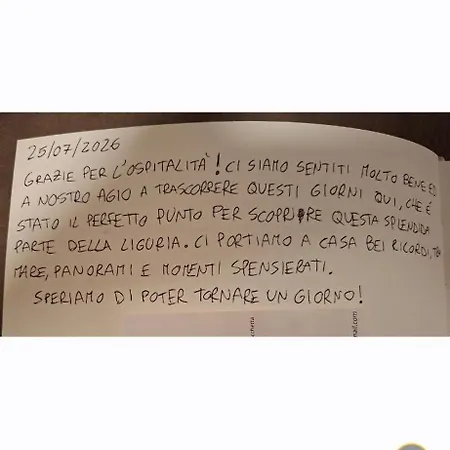 25/07/2026
GRAZIE PER L'OSPITALITÀ! CI SIAMO SENTITI MOLTO BENE ED
A NOSTRO AGIO A TRASCORRERE QUESTI GIORNI QUI, CHE È
STATO IL PERFETTO PUNTO PER SCOPRIRE QUESTA SPLENDIDA
PARTE DELLA LIGURIA. CI PORTIAMO A CASA BEI RICORDI,
MARE, PANORAMI E MOMENTI SPENSIERATI.
SPERIAMO DI POTER TORNARE UN GIORNO!
mail.com